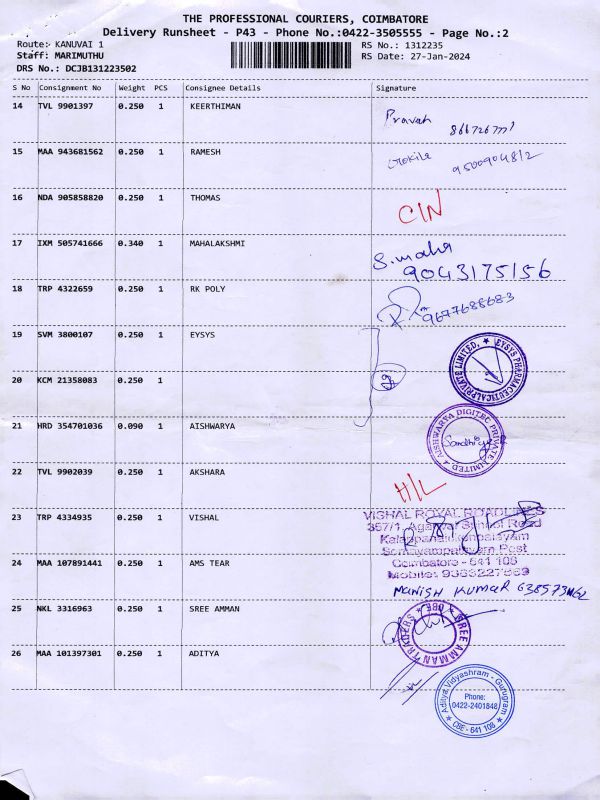 THE PROFESSIONAL COURIERS, COIMBATORE
Delivery Runsheet - P43 - Phone No.:0422-3505555 - Page No.:2
Route:- KANUVAI 1 RS No.: 1312235
Staff: MARIMUTHU RS Date: 27-Jan-2024
DRS No.: DCJB131223502
S No Consignment No Weight PCS Consignee Details Signature
14 TVL 9901397 0.250 1 KEERTHIMAN
15 MAA 943681562 0.250 1 RAMESH
9500904812
16 NDA 905858820 0.250 1 THOMAS CIN
17 IXM 505741666 0.340 1 MAHALAKSHMI S. maha
9043175156
18 TRP 4322659 0.250 1 RK POLY 9677688683
19 SVM 3800107 0.250 1 EYSYS
EYSYS PHARMACEUTICAL PRIVATE LIMITED
20 KCM 21358083 0.250 1
21 HRD 354701036 0.090 1 AISHWARYA
AISHWARYA DIGITEC PRIVATE LIMITED
Sandhiya
22 TVL 9902039 0.250 1 AKSHARA H/L
23 TRP 4334935 0.250 1 VISHAL
VISHAL ROYAL ROADLINES
357/1, Agarwal School Road
Somayampalayam Post
Coimbatore - 641 108
Mobile: 9363227869
24 MAA 107891441 0.250 1 AMS TEAR
MANISH KUMAR
25 NKL 3316963 0.250 1 SREE AMMAN
SREE AMMAN TRADERS CBE
26 MAA 101397301 0.250 1 ADITYA
Aditya Vidyashram - Gurugram
Phone:
0422-2401848
CBE - 641 108